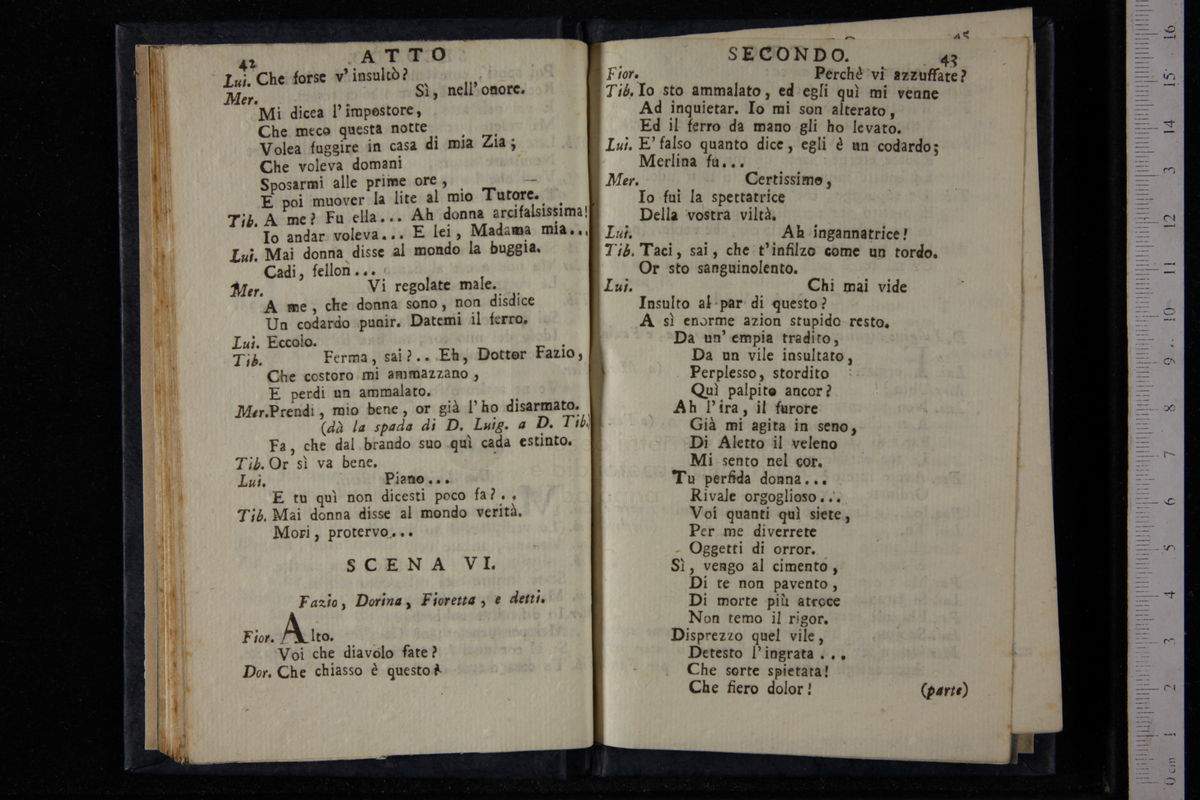 42
ATTO
Lui. Che forse v'insultò?
Mer. Sì, nell'onore.
Mi dicea l'impostore,
Che meco questa notte
Volea fuggire in casa di mia Zia;
Che voleva domani
Sposarmi alle prime ore,
E poi muover la lite al mio Tutore.
Tib. A me? Fu ella... Ah donna arcifalsissima!
Io andar voleva... E lei, Madama mia...
Lui. Mai donna disse al mondo la buggia.
Cadi, fellon...
Mer. Vi regolate male.
A me, che donna sono, non disdice
Un codardo punir. Datemi il ferro.
Lui. Eccolo.
Tib. Ferma, sai?.. Eh, Dottor Fazio,
Che costoro mi ammazzano,
E perdi un ammalato.
Mer. Prendi, mio bene, or già l'ho disarmato.
(dà la spada di D. Luig. a D. Tib.)
Fa, che dal brando suo quì cada estinto.
Tib. Or sì va bene.
Lui. Piano...
E tu quì non dicesti poco fa?..
Tib. Mai donna disse al mondo verità.
Mori, protervo...
SCENA VI.
Fazio, Dorina, Fioretta, e detti.
Fior. Alto.
Voi che diavolo fate?
Dor. Che chiasso è questo?
45
SECONDO.
43
Fior. Perchè vi azzuffate?
Tib. Io sto ammalato, ed egli quì mi venne
Ad inquietar. Io mi son alterato,
Ed il ferro da mano gli ho levato.
Lui. E' falso quanto dice, egli è un codardo;
Merlina fu...
Mer. Certissimo,
Io fui la spettatrice
Della vostra viltà.
Lui. Ah ingannatrice!
Tib. Taci, sai, che t'infilzo come un tordo.
Or sto sanguinolento.
Lui. Chi mai vide
Insulto al par di questo?
A sì enorme azion stupido resto.
Da un' empia tradito,
Da un vile insultato,
Perplesso, stordito
Quì palpito ancor?
Ah l'ira, il furore
Già mi agita in seno,
Di Aletto il veleno
Mi sento nel cor.
Tu perfida donna...
Rivale orgoglioso...
Voi quanti quì siete,
Per me diverrete
Oggetti di orror.
Sì, vengo al cimento,
Di te non pavento,
Di morte più atroce
Non temo il rigor.
Disprezzo quel vile,
Detesto l'ingrata...
Che sorte spietata!
Che fiero dolor! (parte)
0 cm 1 2 3 4 5 6 7 8 9 10 11 12 13 14 15 16